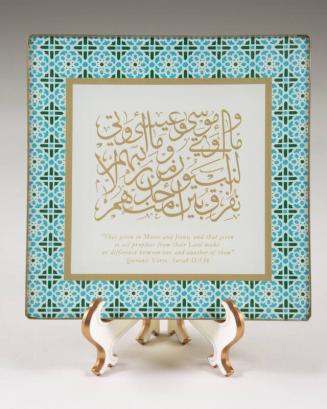 وما أوتي
موسى وعيسى وما أوتي
النبيون من ربهم لا
نفرق بين أحد منهم
"That given to Moses and Jesus, and that given
to all prophets from their Lord make
no difference between one and another of them"
Quranic Verse: Surah II:136